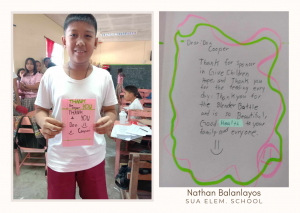 THANK YOU
YOU
Dra.
Casper
Dear Dra.
Casper
Thanks for Sponsor
in Giving Children
hope and Thank you
for the feeding every
day. Thank you for
the Blender Bottle
and is so Beautiful,
Good Health to your
family and everyone
Nathan Balanlayos
SUA ELEM. SCHOOL